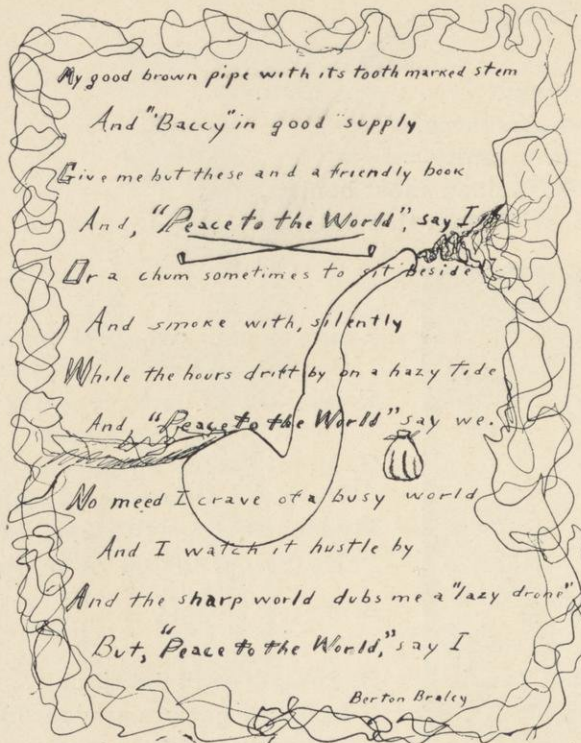 My good brown pipe with its tooth marked stem
And "Baccy" in good supply
Give me but these and a friendly book
And, "Peace to the World", say I
Or a chum sometimes to sit beside
And smoke with, silently
While the hours drift by on a hazy tide
And, "Peace to the World" say we.
No meed I crave of a busy world
And I watch it hustle by
And the sharp world dubs me a "lazy drone"
But, "Peace to the World," say I
Berton Braley